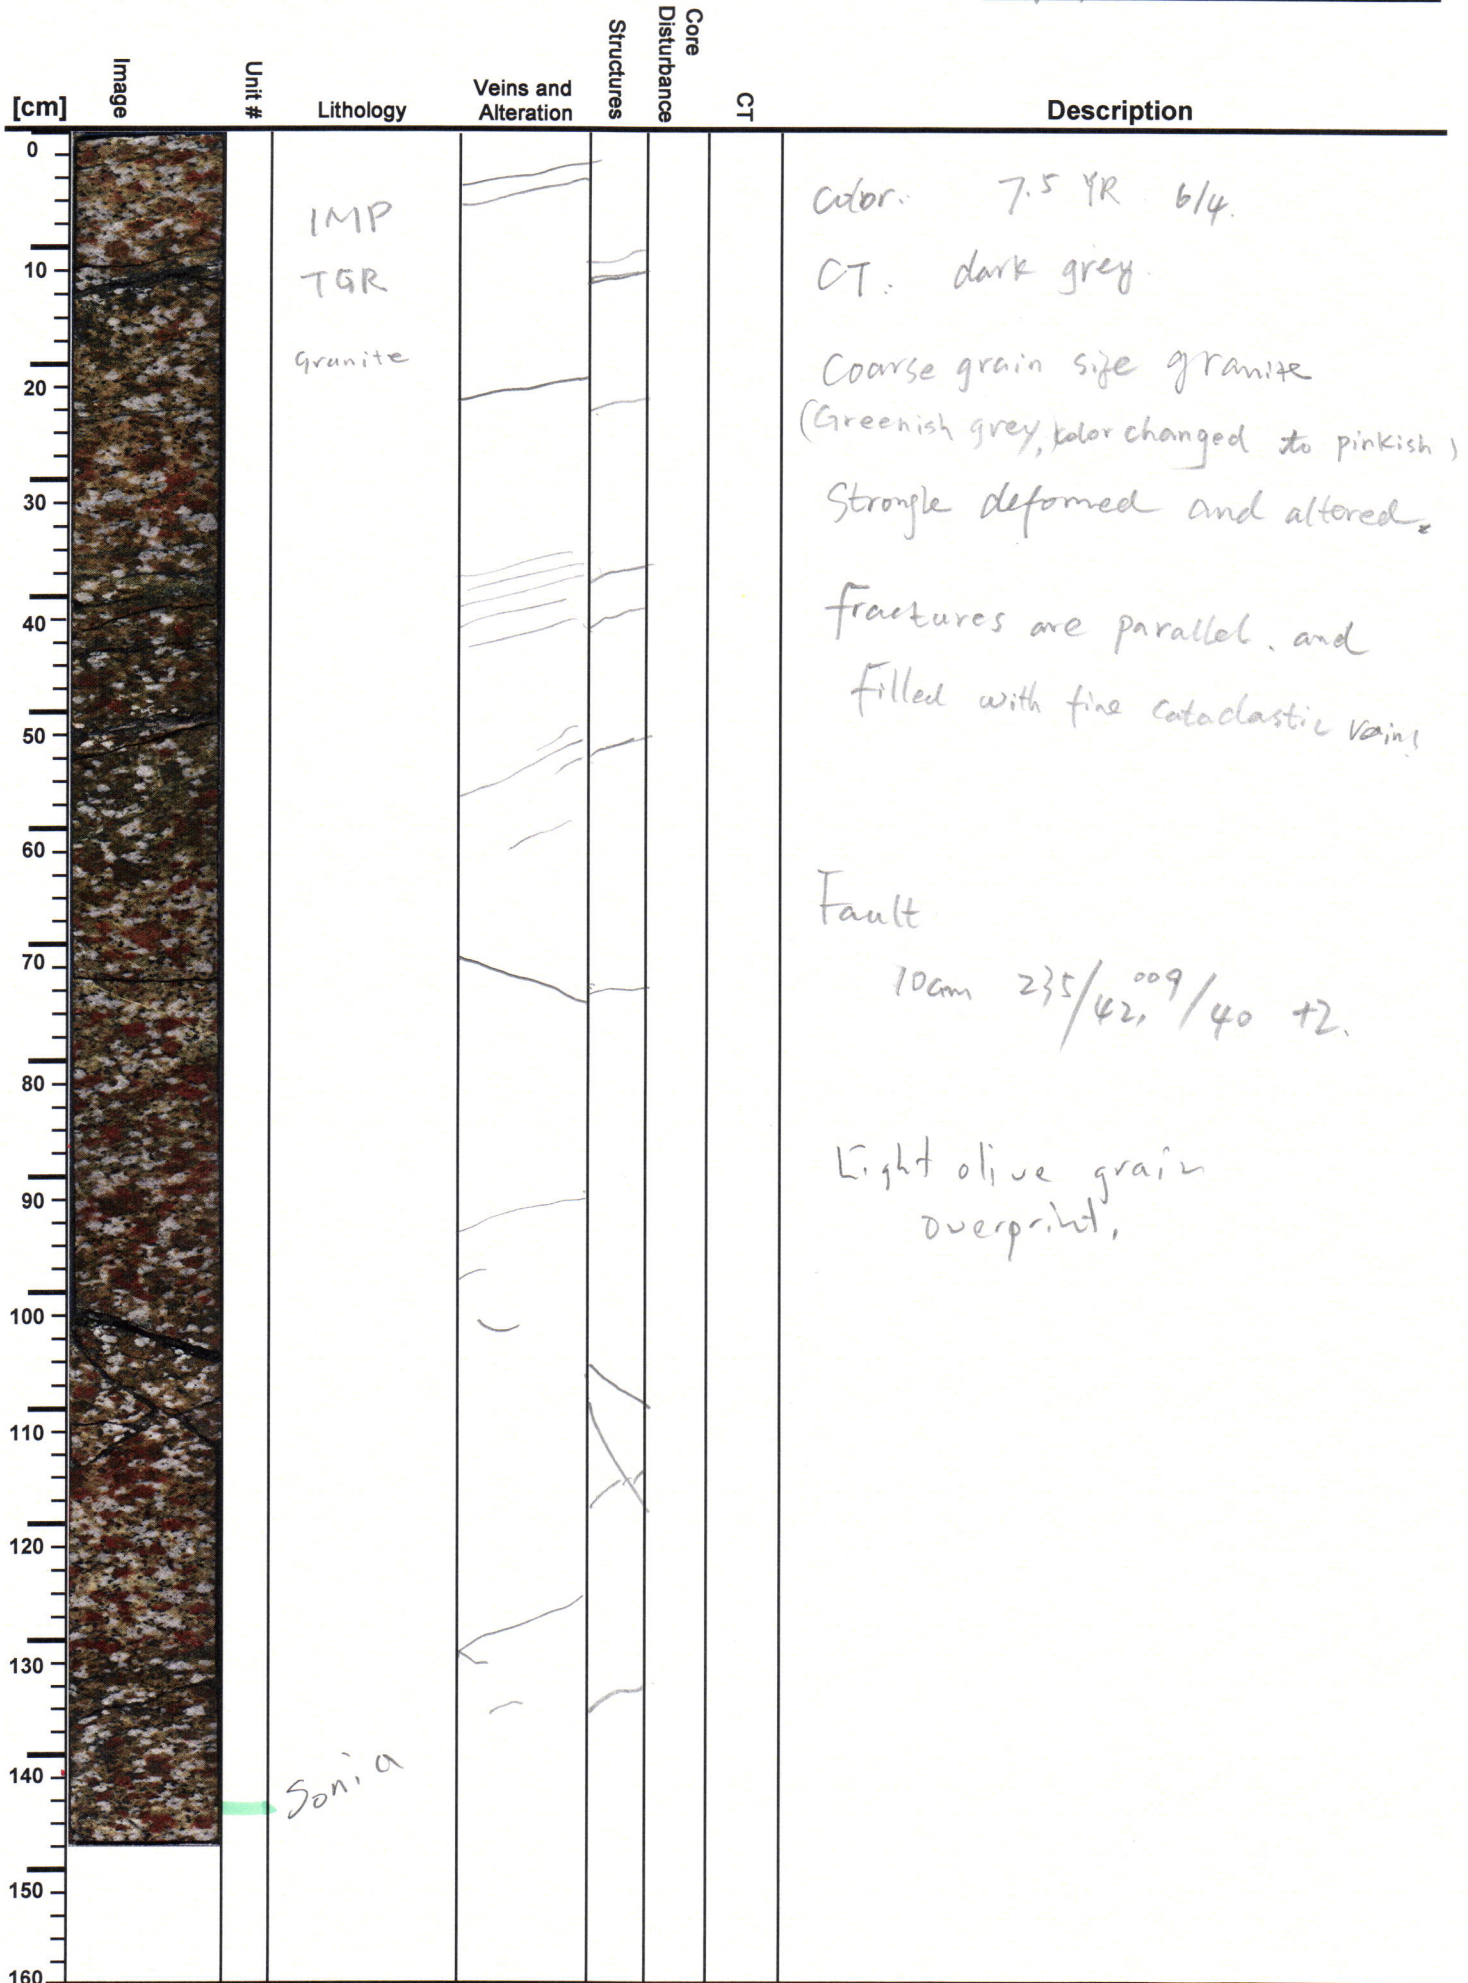 [cm]
Image
Unit #
Lithology
Veins and
Alteration
Structures
Core
Disturbance
CT
Description
0
10
20
30
40
50
60
70
80
90
100
110
120
130
140
150
160
IMP
TGR
Granite
Sonia
Color: 7.5 YR 6/4.
CT: dark grey.
Coarse grain size granite
(Greenish grey, color changed to pinkish)
Strongle deformed and altered.
fractures are parallel. and
filled with fine cataclastic veins
Fault
10cm 235/42, 009/40 +2.
Light olive grain
overprint.